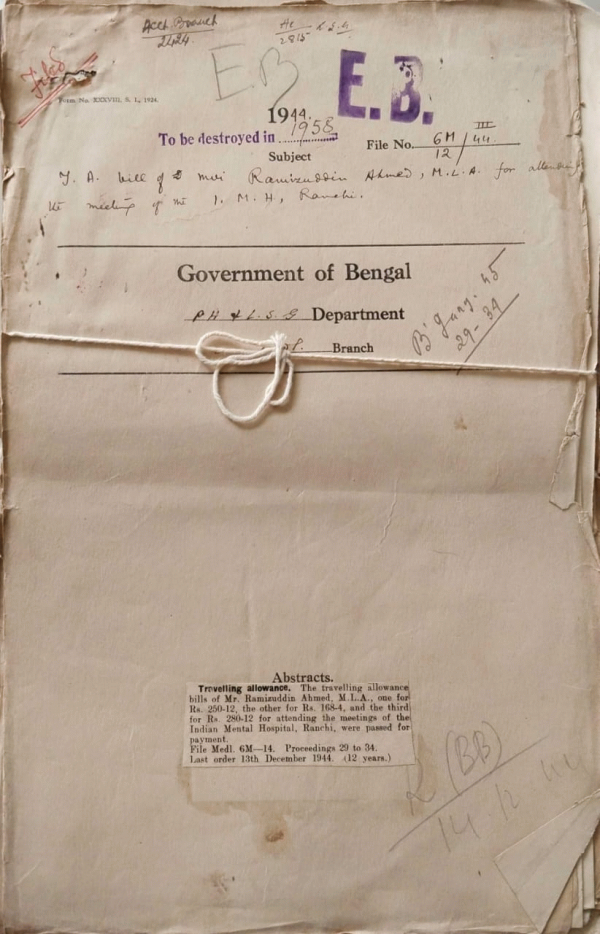 Acctt Branch
2424
2815
Filed
EB
E.B.
Form No. XXXVIII, S. I., 1924.
1944.
To be destroyed in 1958
File No. 6M/12 / III/44
Subject
T. A. bill of Ramizuddin Ahmed, M.L.A. for attending
the meeting of the I. M. H, Ranchi.
Government of Bengal
PH & L.S.G Department
Branch
45
29-34
Abstracts.
Travelling allowance. The travelling allowance
bills of Mr. Ramizuddin Ahmed, M.L.A., one for
Rs. 250-12, the other for Rs. 168-4, and the third
for Rs. 280-12 for attending the meetings of the
Indian Mental Hospital, Ranchi, were passed for
payment.
File Medl. 6M—14. Proceedings 29 to 34.
Last order 13th December 1944. (12 years.)
(BB)
14.12.44